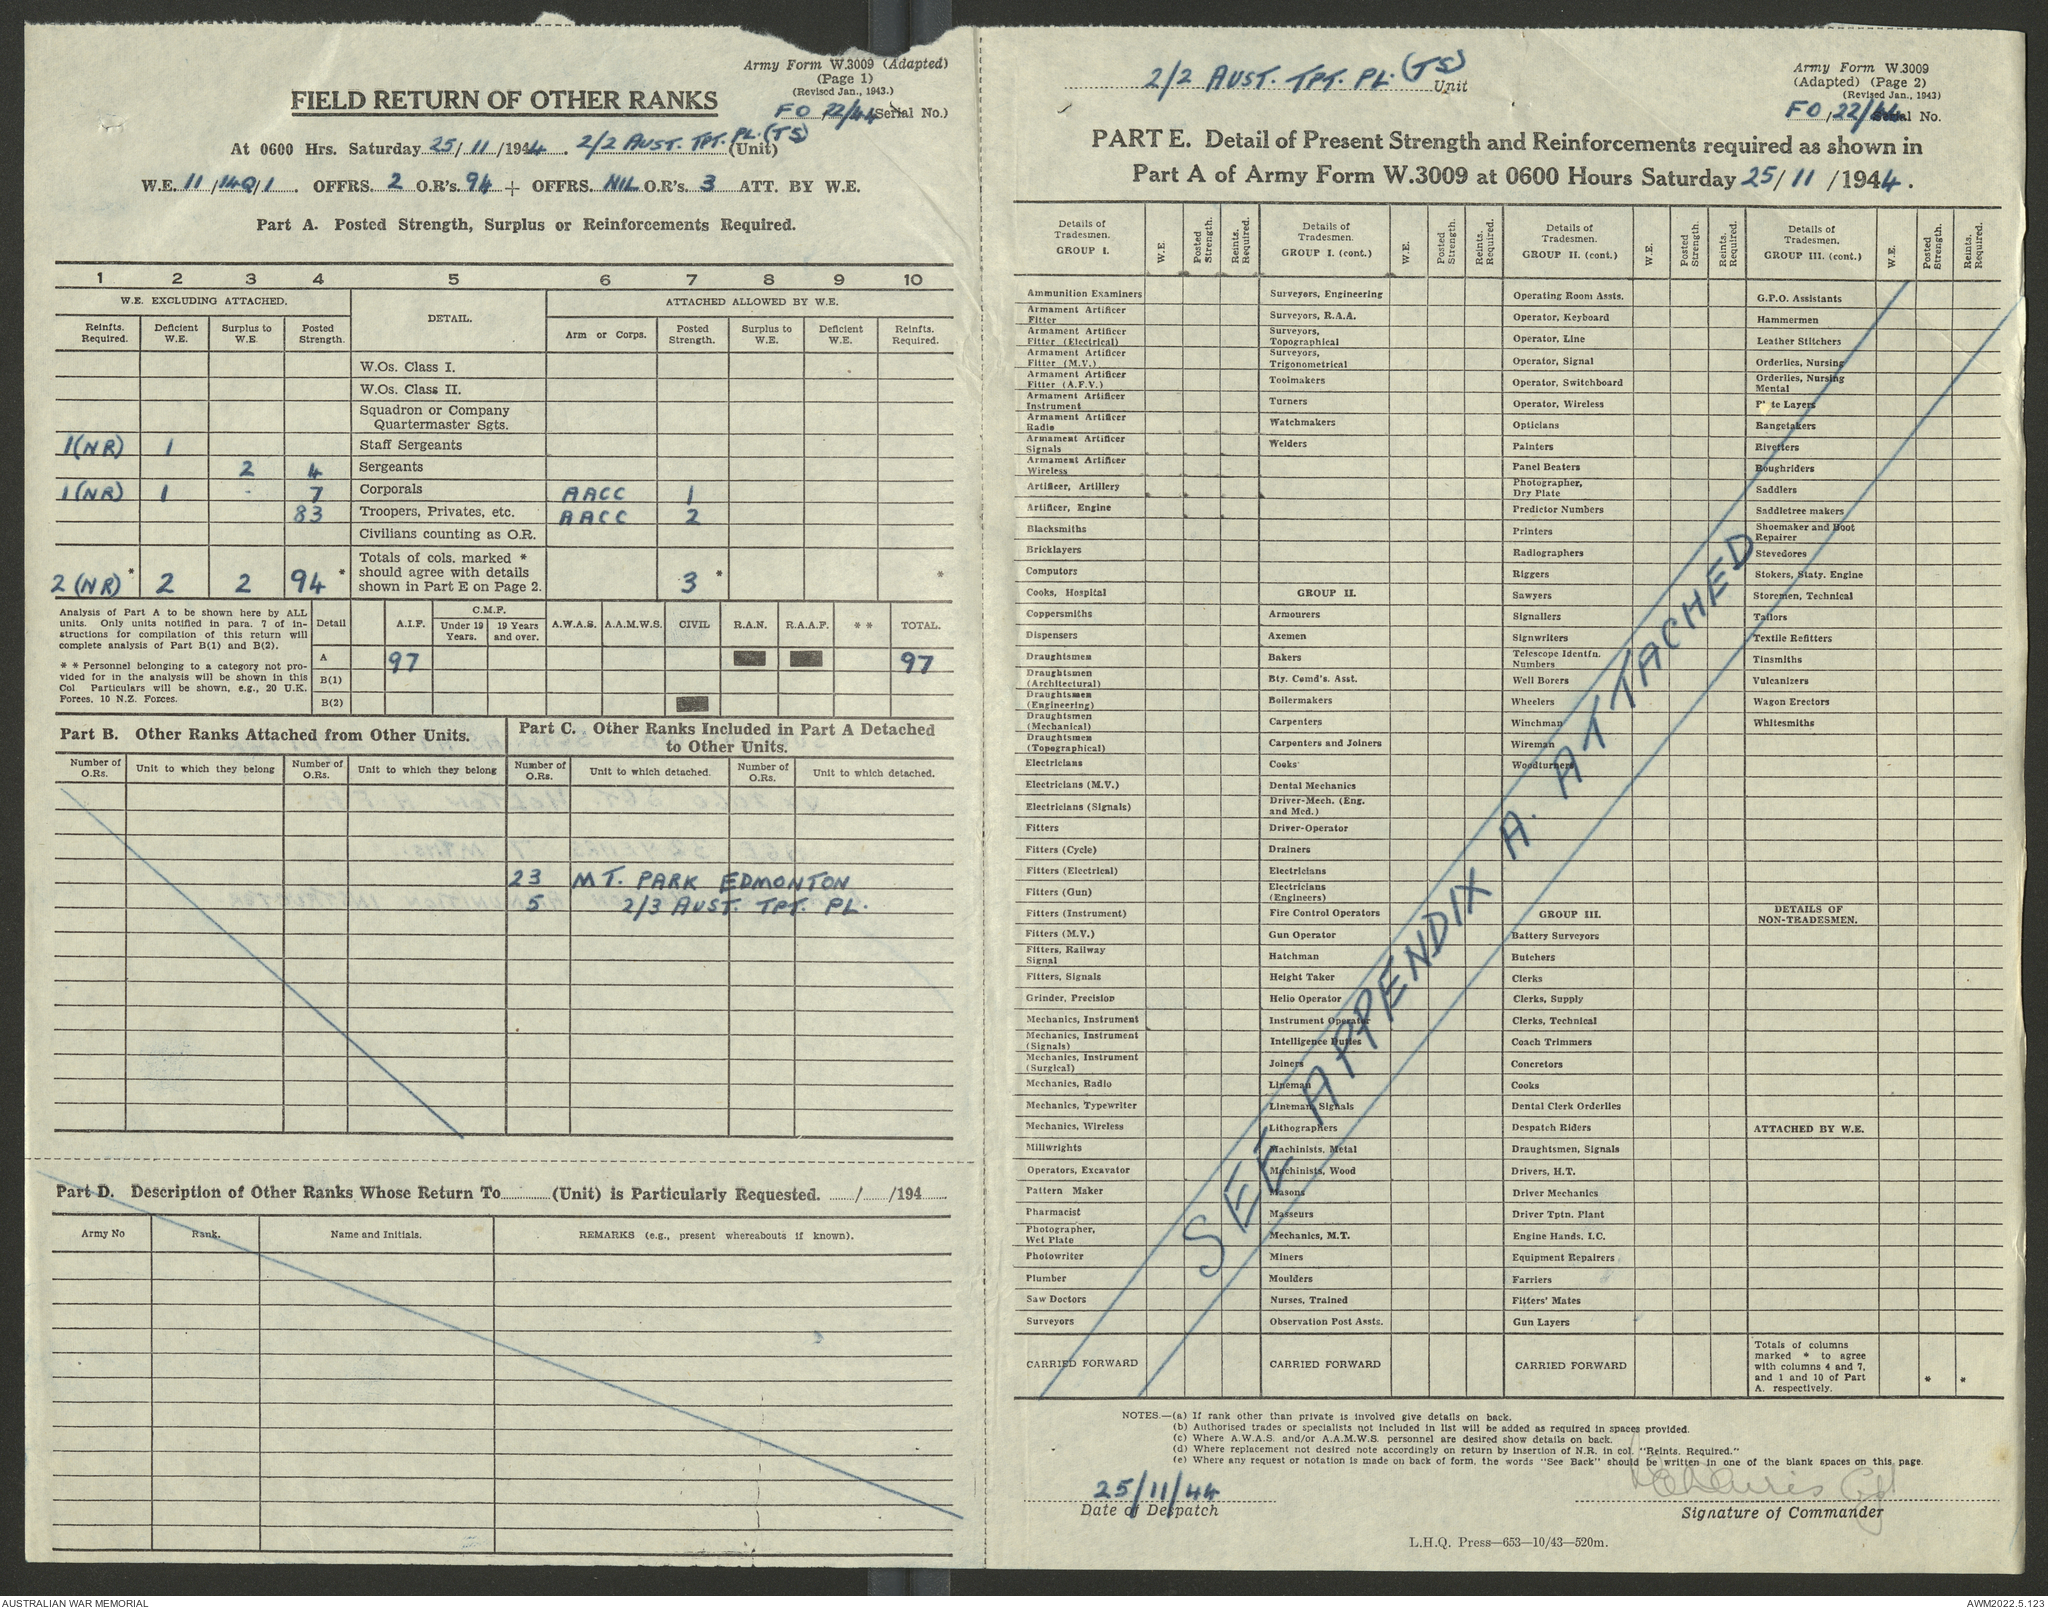 Army Form W.3009 (Adapted)
(Page 1)
(Revised Jan., 1943.)
FIELD RETURN OF OTHER RANKS
FO 22/44 (Serial No.)
At 0600 Hrs. Saturday 25/11/1944. 2/2 AUST. TPT. PL. (TS) (Unit)
W.E. 11/140/1. OFFRS. 2 O.R's. 94 + OFFRS. NIL O.R's. 3 ATT. BY W.E.
Part A. Posted Strength, Surplus or Reinforcements Required.
1 2 3 4 5 6 7 8 9 10
W.E. EXCLUDING ATTACHED. DETAIL. ATTACHED ALLOWED BY W.E.
Reinfts. Required. Deficient W.E. Surplus to W.E. Posted Strength. Arm or Corps. Posted Strength. Surplus to W.E. Deficient W.E. Reinfts. Required.
W.Os. Class I.
W.Os. Class II.
Squadron or Company
Quartermaster Sgts.
1(NR) 1 Staff Sergeants
2 4 Sergeants
1(NR) 1 7 Corporals AACC 1
83 Troopers, Privates, etc. AACC 2
Civilians counting as O.R.
Totals of cols. marked *
should agree with details
2(NR) * 2 2 94 * shown in Part E on Page 2. 3 * *
Analysis of Part A to be shown here by ALL
units. Only units notified in para. 7 of in-
structions for compilation of this return will
complete analysis of Part B(1) and B(2).
* * Personnel belonging to a category not pro-
vided for in the analysis will be shown in this
Col Particulars will be shown, e.g., 20 U.K.
Forces, 10 N.Z. Forces.
C.M.F.
Detail A.I.F. Under 19 Years. 19 Years and over. A.W.A.S. A.A.M.W.S. CIVIL R.A.N. R.A.A.F. * * TOTAL.
A 97 97
B(1)
B(2)
Part B. Other Ranks Attached from Other Units.
Part C. Other Ranks Included in Part A Detached
to Other Units.
Number of O.Rs. Unit to which they belong Number of O.Rs. Unit to which they belong Number of O.Rs. Unit to which detached. Number of O.Rs. Unit to which detached.
23 MT. PARK EDMONTON
5 2/3 AUST. TPT. PL.
Part D. Description of Other Ranks Whose Return To (Unit) is Particularly Requested. / /194
Army No Rank. Name and Initials. REMARKS (e.g., present whereabouts if known).
2/2 AUST. TPT. PL. (TS) Unit
Army Form W.3009
(Adapted) (Page 2)
(Revised Jan., 1943)
FO/22/44 Serial No.
PART E. Detail of Present Strength and Reinforcements required as shown in
Part A of Army Form W.3009 at 0600 Hours Saturday 25/11/1944.
Details of Tradesmen. GROUP I. W.E. Posted Strength. Reints. Required.
Ammunition Examiners
Armament Artificer Fitter
Armament Artificer Fitter (Electrical)
Armament Artificer Fitter (M.V.)
Armament Artificer Fitter (A.F.V.)
Armament Artificer Instrument
Armament Artificer Radio
Armament Artificer Signals
Armament Artificer Wireless
Artificer, Artillery
Artificer, Engine
Blacksmiths
Bricklayers
Computors
Cooks, Hospital
Coppersmiths
Dispensers
Draughtsmen
Draughtsmen (Architectural)
Draughtsmen (Engineering)
Draughtsmen (Mechanical)
Draughtsmen (Topographical)
Electricians
Electricians (M.V.)
Electricians (Signals)
Fitters
Fitters (Cycle)
Fitters (Electrical)
Fitters (Gun)
Fitters (Instrument)
Fitters (M.V.)
Fitters, Railway Signal
Fitters, Signals
Grinder, Precision
Mechanics, Instrument
Mechanics, Instrument (Signals)
Mechanics, Instrument (Surgical)
Mechanics, Radio
Mechanics, Typewriter
Mechanics, Wireless
Millwrights
Operators, Excavator
Pattern Maker
Pharmacist
Photographer, Wet Plate
Photowriter
Plumber
Saw Doctors
Surveyors
CARRIED FORWARD
Details of Tradesmen. GROUP I. (cont.) W.E. Posted Strength. Reints. Required.
Surveyors, Engineering
Surveyors, R.A.A.
Surveyors, Topographical
Surveyors, Trigonometrical
Toolmakers
Turners
Watchmakers
Welders
GROUP II.
Armourers
Axemen
Bakers
Bty. Comd's. Asst.
Boilermakers
Carpenters
Carpenters and Joiners
Cooks
Dental Mechanics
Driver-Mech. (Eng. and Med.)
Driver-Operator
Drainers
Electricians
Electricians (Engineers)
Fire Control Operators
Gun Operator
Hatchman
Height Taker
Helio Operator
Instrument Operator
Intelligence Duties
Joiners
Lineman
Lineman, Signals
Lithographers
Machinists, Metal
Machinists, Wood
Masons
Masseurs
Mechanics, M.T.
Miners
Moulders
Nurses, Trained
Observation Post Assts.
CARRIED FORWARD
Details of Tradesmen. GROUP II. (cont.) W.E. Posted Strength. Reints. Required.
Operating Room Assts.
Operator, Keyboard
Operator, Line
Operator, Signal
Operator, Switchboard
Operator, Wireless
Opticians
Painters
Panel Beaters
Photographer, Dry Plate
Predictor Numbers
Printers
Radiographers
Riggers
Sawyers
Signallers
Signwriters
Telescope Identfn. Numbers
Well Borers
Wheelers
Winchman
Wireman
Woodturners
GROUP III.
Battery Surveyors
Butchers
Clerks
Clerks, Supply
Clerks, Technical
Coach Trimmers
Concretors
Cooks
Dental Clerk Orderlies
Despatch Riders
Draughtsmen, Signals
Drivers, H.T.
Driver Mechanics
Driver Tptn. Plant
Engine Hands, I.C.
Equipment Repairers
Farriers
Fitters' Mates
Gun Layers
CARRIED FORWARD
Details of Tradesmen. GROUP III. (cont.) W.E. Posted Strength. Reints. Required.
G.P.O. Assistants
Hammermen
Leather Stitchers
Orderlies, Nursing
Orderlies, Nursing Mental
Plate Layers
Rangetakers
Rivetters
Roughriders
Saddlers
Saddletree makers
Shoemaker and Boot Repairer
Stevedores
Stokers, Staty. Engine
Storemen, Technical
Tailors
Textile Refitters
Tinsmiths
Vulcanizers
Wagon Erectors
Whitesmiths
DETAILS OF NON-TRADESMEN.
ATTACHED BY W.E.
Totals of columns
marked * to agree
with columns 4 and 7,
and 1 and 10 of Part
A. respectively. * *
SEE APPENDIX A. ATTACHED
NOTES.—(a) If rank other than private is involved give details on back.
(b) Authorised trades or specialists not included in list will be added as required in spaces provided.
(c) Where A.W.A.S. and/or A.A.M.W.S. personnel are desired show details on back.
(d) Where replacement not desired note accordingly on return by insertion of N.R. in col. "Reints. Required."
(e) Where any request or notation is made on back of form, the words "See Back" should be written in one of the blank spaces on this page.
25/11/44
Date of Despatch
Signature of Commander
L.H.Q. Press—653—10/43—520m.
AUSTRALIAN WAR MEMORIAL
AWM2022.5.123